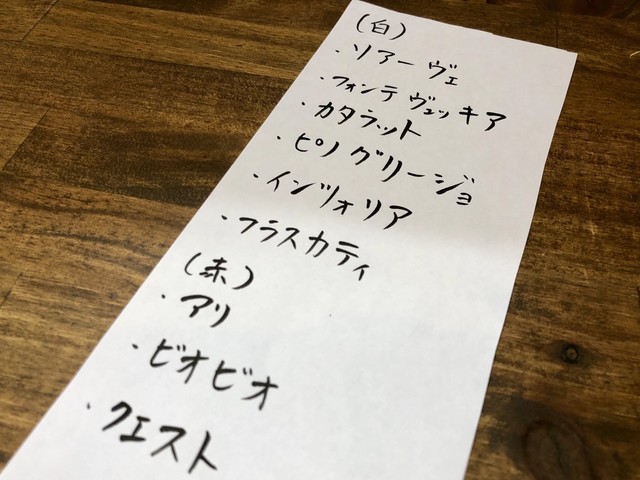 (白)
・ソアーヴェ
・フォンテヴェッキア
・カタラット
・ピノグリージョ
・インツォリア
・フラスカティ
(赤)
・アリ
・ビオビオ
・クエスト